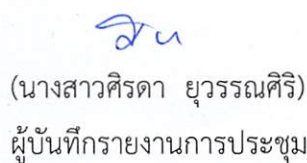 (นางสาวศิรดา ยุวรรณศิริ)
ผู้บันทึกรายงานการประชุม